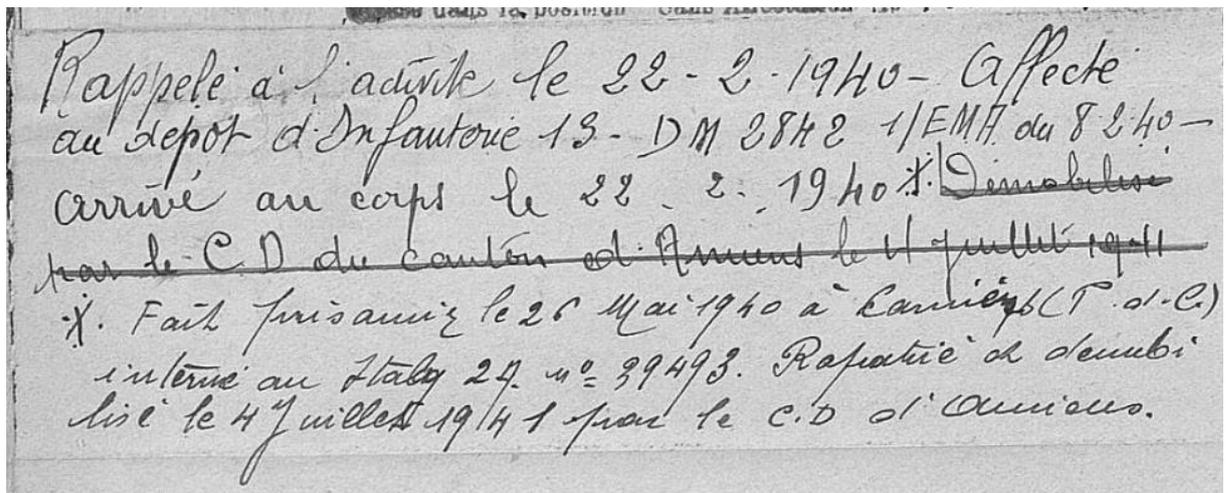 dans la position sans
Rappelé à l'activité le 22 - 2 - 1940 - Affecté
au depot d'Infanterie 13 - DM 2842 1/EMA du 8 2 40 -
arrivé au corps le 22 . 2 . 1940 X. Démobilisé
par le C.D du canton d'Amiens le 11 juillet 1941
X. Fait prisonnier le 26 Mai 1940 à (P.d.C.)
interné au Stalag 2A. nº 39493. Rapatrié et demobi
lisé le 4 Juillet 1941 par le C.D d'Amiens.